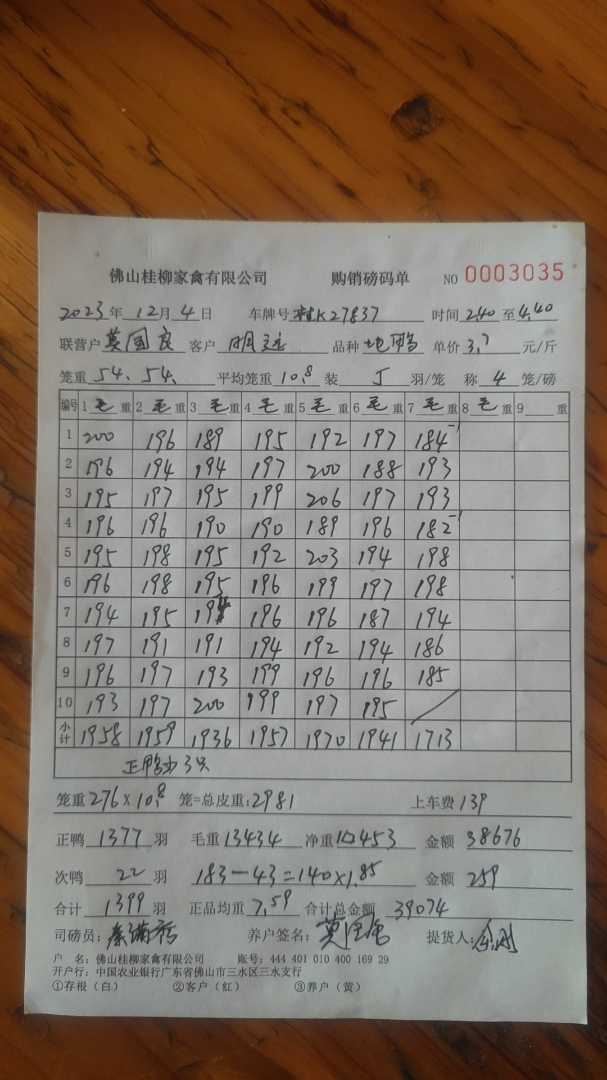 佛山桂柳家禽有限公司 购销磅码单 NO 0003035
2023年 12月 4日 车牌号 桂K27837 时间 240 至 4.40
联营户 莫国良 客户 明连 品种 土鸭 单价 3.7 元/斤
笼重 54. 54. 平均笼重 10.8 装 5 羽/笼 称 4 笼/磅
编号 1 毛 重 2 毛 重 3 毛 重 4 毛 重 5 毛 重 6 毛 重 7 毛 重 8 毛 重 9 重
1 200 196 189 195 192 197 184 -1
2 196 194 194 197 200 188 193
3 195 197 195 199 206 197 193
4 196 196 190 190 189 196 182 -1
5 195 198 195 192 203 194 198
6 196 198 195 196 199 197 198
7 194 195 194 196 196 187 194
8 197 191 191 194 192 194 186
9 196 197 193 199 196 196 185
10 193 197 200 199 197 195
小计 1958 1959 1936 1957 1970 1941 1713
正鸭少3只
笼重 276 X 10.8 笼=总皮重: 2981 上车费 139
正鸭 1377 羽 毛重 13434 净重 10453 金额 38676
次鸭 22 羽 183-43=140×1.85 金额 259
合计 1399 羽 正品均重 7.59 合计总金额 39074
司磅员: 养户签名: 莫国良 提货人:
户 名: 佛山桂柳家禽有限公司 账号: 444 401 010 400 169 29
开户行: 中国农业银行广东省佛山市三水区三水支行
①存根(白) ②客户(红) ③养户(黄)